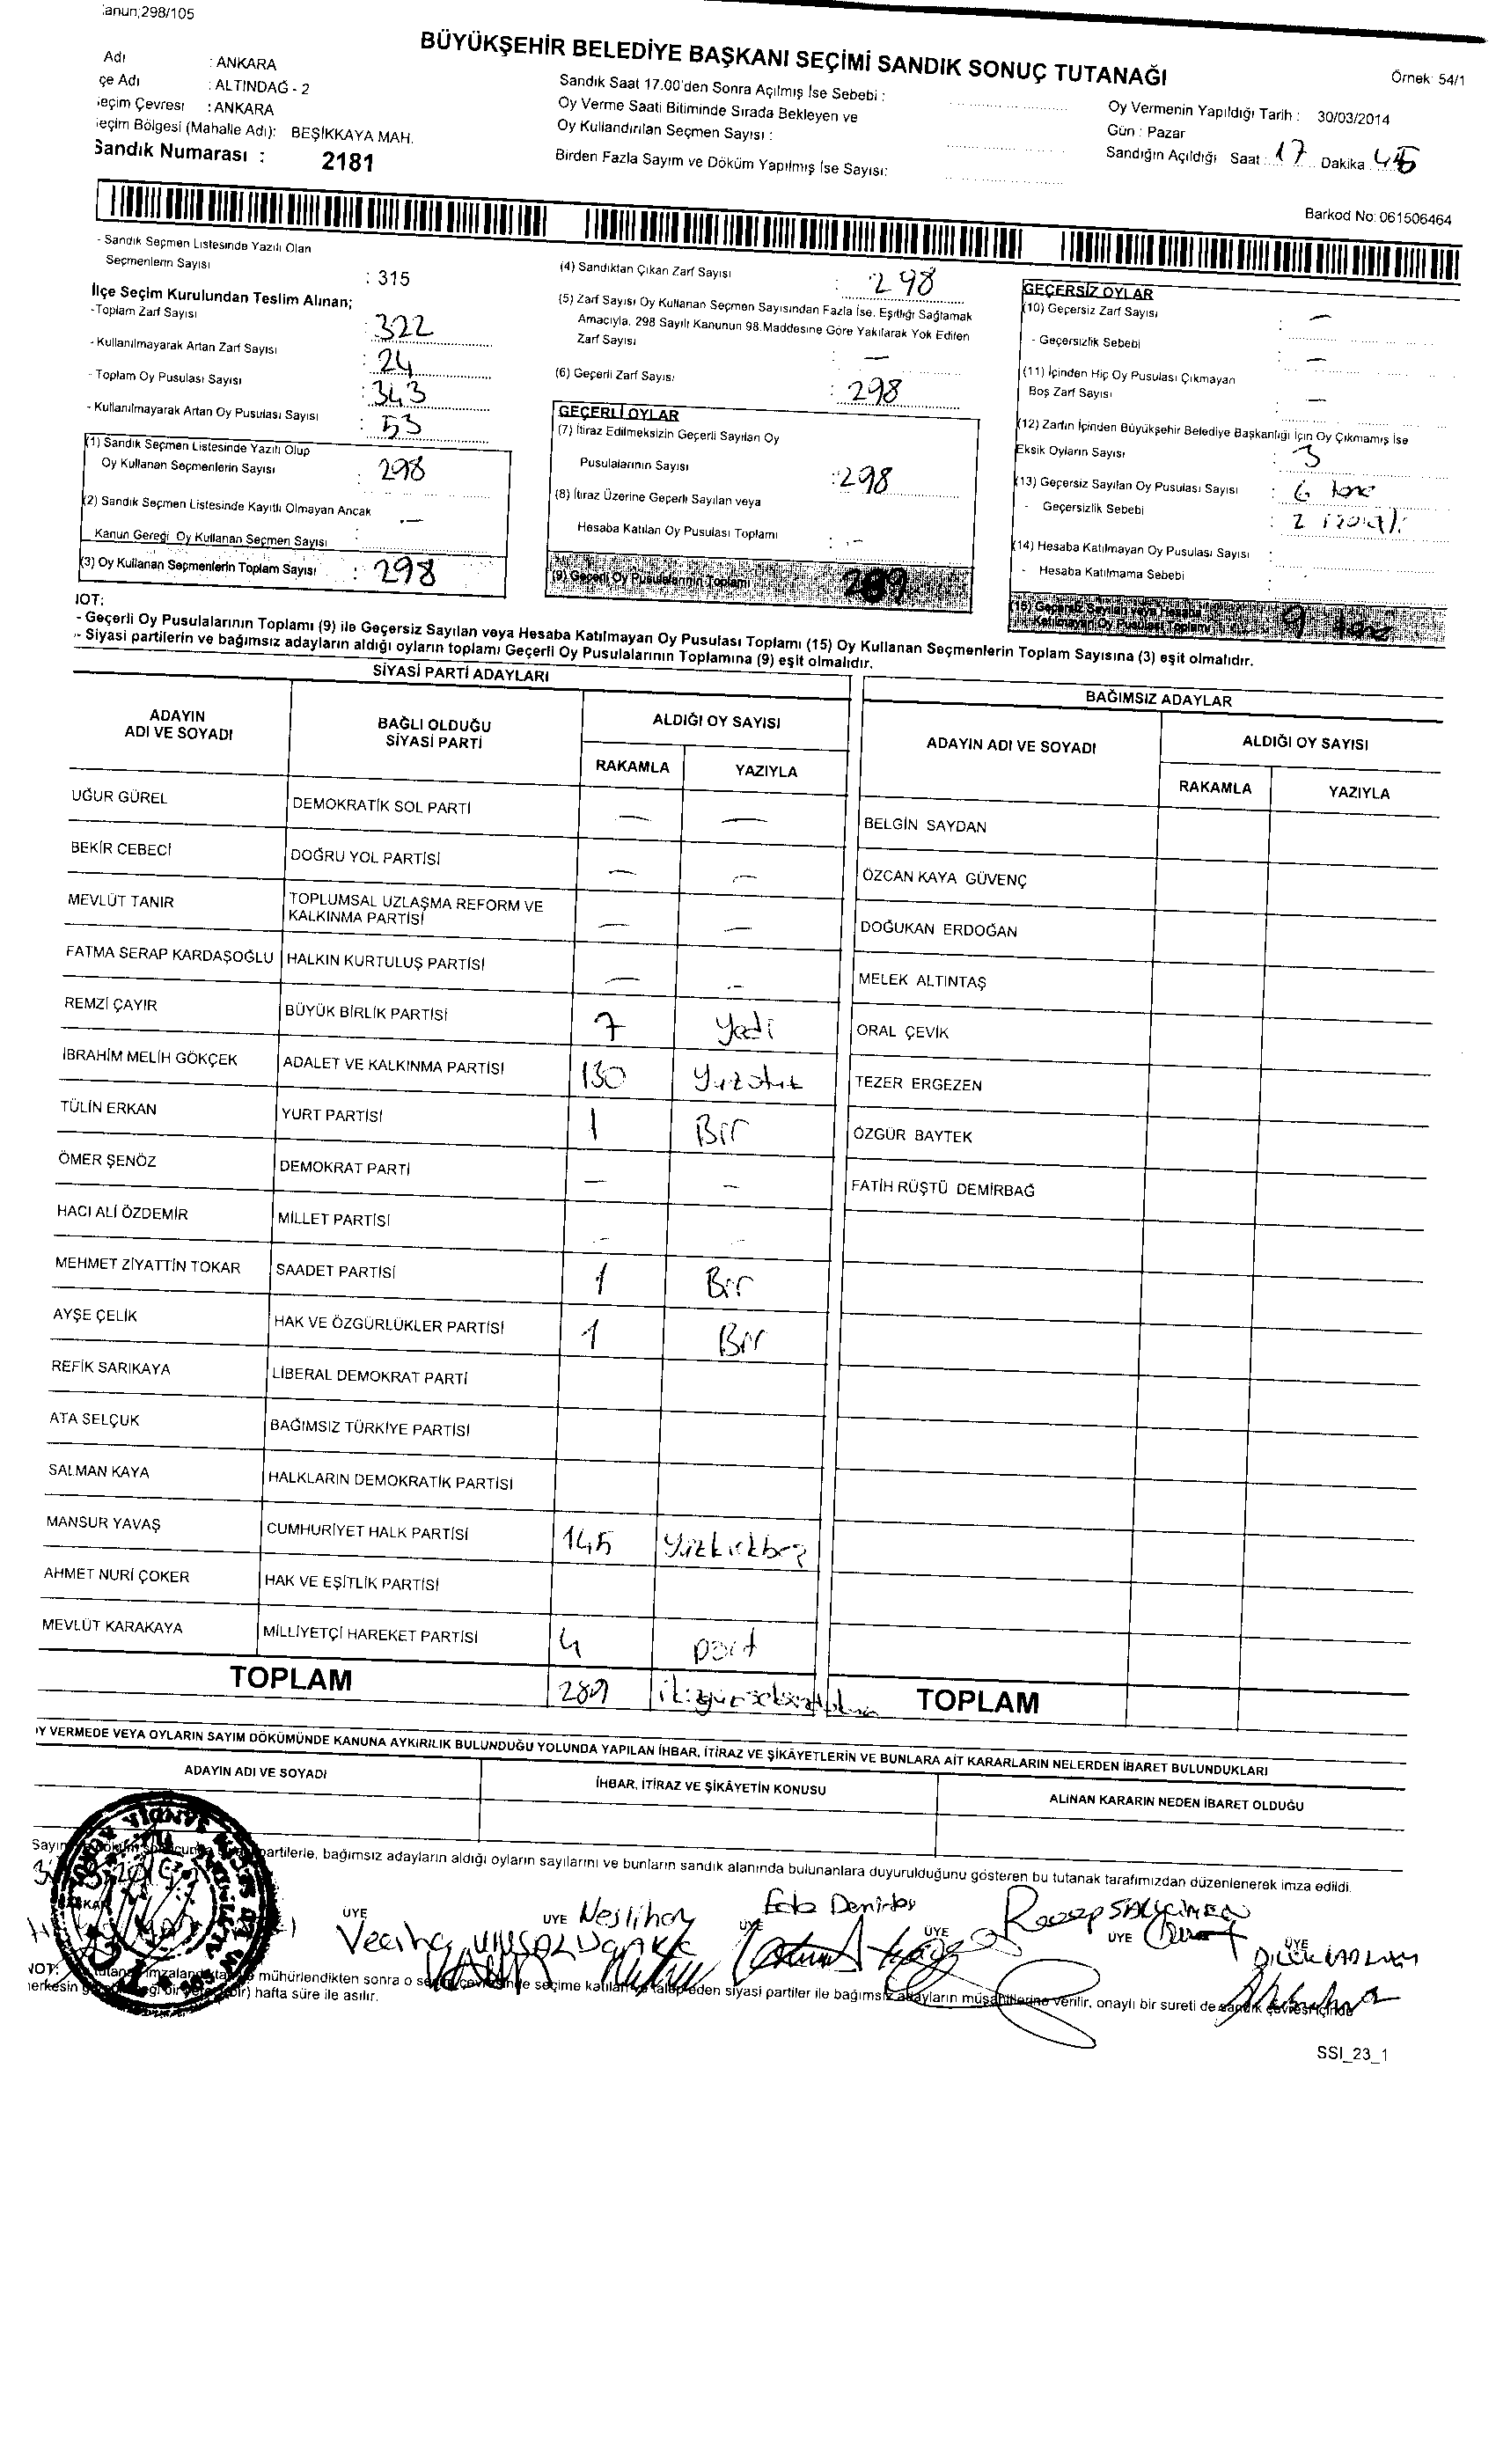 anun;298/105
BÜYÜKŞEHİR BELEDİYE BAŞKANI SEÇİMİ SANDIK SONUÇ TUTANAĞI
Örnek: 54/1
Adı : ANKARA
çe Adı : ALTINDAĞ - 2
eçim Çevresi : ANKARA
eçim Bölgesi (Mahalle Adı): BEŞİKKAYA MAH.
Sandık Numarası : 2181
Sandık Saat 17.00'den Sonra Açılmış İse Sebebi :
Oy Verme Saati Bitiminde Sırada Bekleyen ve
Oy Kullandırılan Seçmen Sayısı :
Birden Fazla Sayım ve Döküm Yapılmış İse Sayısı:
Oy Vermenin Yapıldığı Tarih : 30/03/2014
Gün : Pazar
Sandığın Açıldığı Saat : 17 Dakika 45
Barkod No: 061506464
- Sandık Seçmen Listesinde Yazılı Olan
Seçmenlerin Sayısı : 315
İlçe Seçim Kurulundan Teslim Alınan;
-Toplam Zarf Sayısı : 322
- Kullanılmayarak Artan Zarf Sayısı : 24
- Toplam Oy Pusulası Sayısı : 343
- Kullanılmayarak Artan Oy Pusulası Sayısı : 53
(1) Sandık Seçmen Listesinde Yazılı Olup
Oy Kullanan Seçmenlerin Sayısı : 298
(2) Sandık Seçmen Listesinde Kayıtlı Olmayan Ancak
Kanun Gereği Oy Kullanan Seçmen Sayısı : -
(3) Oy Kullanan Seçmenlerin Toplam Sayısı : 298
(4) Sandıktan Çıkan Zarf Sayısı : 298
(5) Zarf Sayısı Oy Kullanan Seçmen Sayısından Fazla İse, Eşitliği Sağlamak
Amacıyla, 298 Sayılı Kanunun 98.Maddesine Göre Yakılarak Yok Edilen
Zarf Sayısı : -
(6) Geçerli Zarf Sayısı : 298
GEÇERLİ OYLAR
(7) İtiraz Edilmeksizin Geçerli Sayılan Oy
Pusulalarının Sayısı : 298
(8) İtiraz Üzerine Geçerli Sayılan veya
Hesaba Katılan Oy Pusulası Toplamı : -
(9) Geçerli Oy Pusulalarının Toplamı 289
GEÇERSİZ OYLAR
(10) Geçersiz Zarf Sayısı : -
- Geçersizlik Sebebi : -
(11) İçinden Hiç Oy Pusulası Çıkmayan
Boş Zarf Sayısı : -
(12) Zarfın İçinden Büyükşehir Belediye Başkanlığı İçin Oy Çıkmamış İse
Eksik Oyların Sayısı : 3
(13) Geçersiz Sayılan Oy Pusulası Sayısı : 6 tane
- Geçersizlik Sebebi :
(14) Hesaba Katılmayan Oy Pusulası Sayısı :
- Hesaba Katılmama Sebebi :
(15) Geçersiz Sayılan veya Hesaba
Katılmayan Oy Pusulası Toplamı 9 tane
NOT:
- Geçerli Oy Pusulalarının Toplamı (9) ile Geçersiz Sayılan veya Hesaba Katılmayan Oy Pusulası Toplamı (15) Oy Kullanan Seçmenlerin Toplam Sayısına (3) eşit olmalıdır.
- Siyasi partilerin ve bağımsız adayların aldığı oyların toplamı Geçerli Oy Pusulalarının Toplamına (9) eşit olmalıdır.
SİYASİ PARTİ ADAYLARI
ADAYIN ADI VE SOYADI BAĞLI OLDUĞU SİYASİ PARTİ ALDIĞI OY SAYISI
RAKAMLA YAZIYLA
UĞUR GÜREL DEMOKRATİK SOL PARTİ - -
BEKİR CEBECİ DOĞRU YOL PARTİSİ - -
MEVLÜT TANIR TOPLUMSAL UZLAŞMA REFORM VE KALKINMA PARTİSİ - -
FATMA SERAP KARDAŞOĞLU HALKIN KURTULUŞ PARTİSİ - -
REMZİ ÇAYIR BÜYÜK BİRLİK PARTİSİ 7 Yedi
İBRAHİM MELİH GÖKÇEK ADALET VE KALKINMA PARTİSİ 130 Yüzotuz
TÜLİN ERKAN YURT PARTİSİ 1 Bir
ÖMER ŞENÖZ DEMOKRAT PARTİ - -
HACI ALİ ÖZDEMİR MİLLET PARTİSİ - -
MEHMET ZİYATTİN TOKAR SAADET PARTİSİ 1 Bir
AYŞE ÇELİK HAK VE ÖZGÜRLÜKLER PARTİSİ 1 Bir
REFİK SARIKAYA LİBERAL DEMOKRAT PARTİ
ATA SELÇUK BAĞIMSIZ TÜRKİYE PARTİSİ
SALMAN KAYA HALKLARIN DEMOKRATİK PARTİSİ
MANSUR YAVAŞ CUMHURİYET HALK PARTİSİ 145 Yüzkırkbeş
AHMET NURİ ÇOKER HAK VE EŞİTLİK PARTİSİ
MEVLÜT KARAKAYA MİLLİYETÇİ HAREKET PARTİSİ 4 Dört
TOPLAM 289
BAĞIMSIZ ADAYLAR
ADAYIN ADI VE SOYADI ALDIĞI OY SAYISI
RAKAMLA YAZIYLA
BELGİN SAYDAN
ÖZCAN KAYA GÜVENÇ
DOĞUKAN ERDOĞAN
MELEK ALTINTAŞ
ORAL ÇEVİK
TEZER ERGEZEN
ÖZGÜR BAYTEK
FATİH RÜŞTÜ DEMİRBAĞ
TOPLAM
Y VERMEDE VEYA OYLARIN SAYIM DÖKÜMÜNDE KANUNA AYKIRILIK BULUNDUĞU YOLUNDA YAPILAN İHBAR, İTİRAZ VE ŞİKÂYETLERİN VE BUNLARA AİT KARARLARIN NELERDEN İBARET BULUNDUKLARI
ADAYIN ADI VE SOYADI İHBAR, İTİRAZ VE ŞİKÂYETİN KONUSU ALINAN KARARIN NEDEN İBARET OLDUĞU
Sayım partilerle, bağımsız adayların aldığı oyların sayılarını ve bunların sandık alanında bulunanlara duyurulduğunu gösteren bu tutanak tarafımızdan düzenlenerek imza edildi.
ÜYE ÜYE Neslihan ÜYE Eda Demirbaş ÜYE Recep ÜYE ÜYE
NOT: mühürlendikten sonra o seçim çevresinde seçime katılan ve talep eden siyasi partiler ile bağımsız adayların müşahitlerine verilir, onaylı bir sureti de sandık çevresi içinde
herkesin bir) hafta süre ile asılır.
SSI_23_1